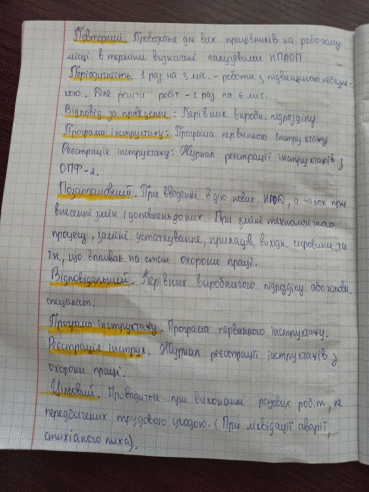 Повторний. Проводиться для всіх працівників на робочому
місці в терміни визначені галузевими НПАОП
Періодичність 1 раз на 3 міс. – роботи з підвищеною небезпе-
кою. Для решти робіт – 1 раз на 6 міс.
Відповід. за проведення: Керівник вироб. підрозділу
Програма інструктажу: Програма первинного інструктажу
Реєстрація інструктажу: Журнал реєстрації інструктажів з
Позаплановий. При введенні в дію нових НПАОП, а також при
внесенні змін і доповнень до них. При зміні технологічного
процесу, заміні устаткування, приладів, вихідн. сировини та
ін, що вплив. на стан охорони праці.
Відповідальний. Керівник виробничого підрозділу або голов.
спеціаліст.
Програма інструктажу. Програма первинного інструктажу.
Реєстрація інструк. Журнал реєстрації інструктажів з
охорони праці.
Цільовий. Проводиться при виконанні разових робіт, не
передбачених трудовою угодою. (При ліквідації аварії,
стихійного лиха).